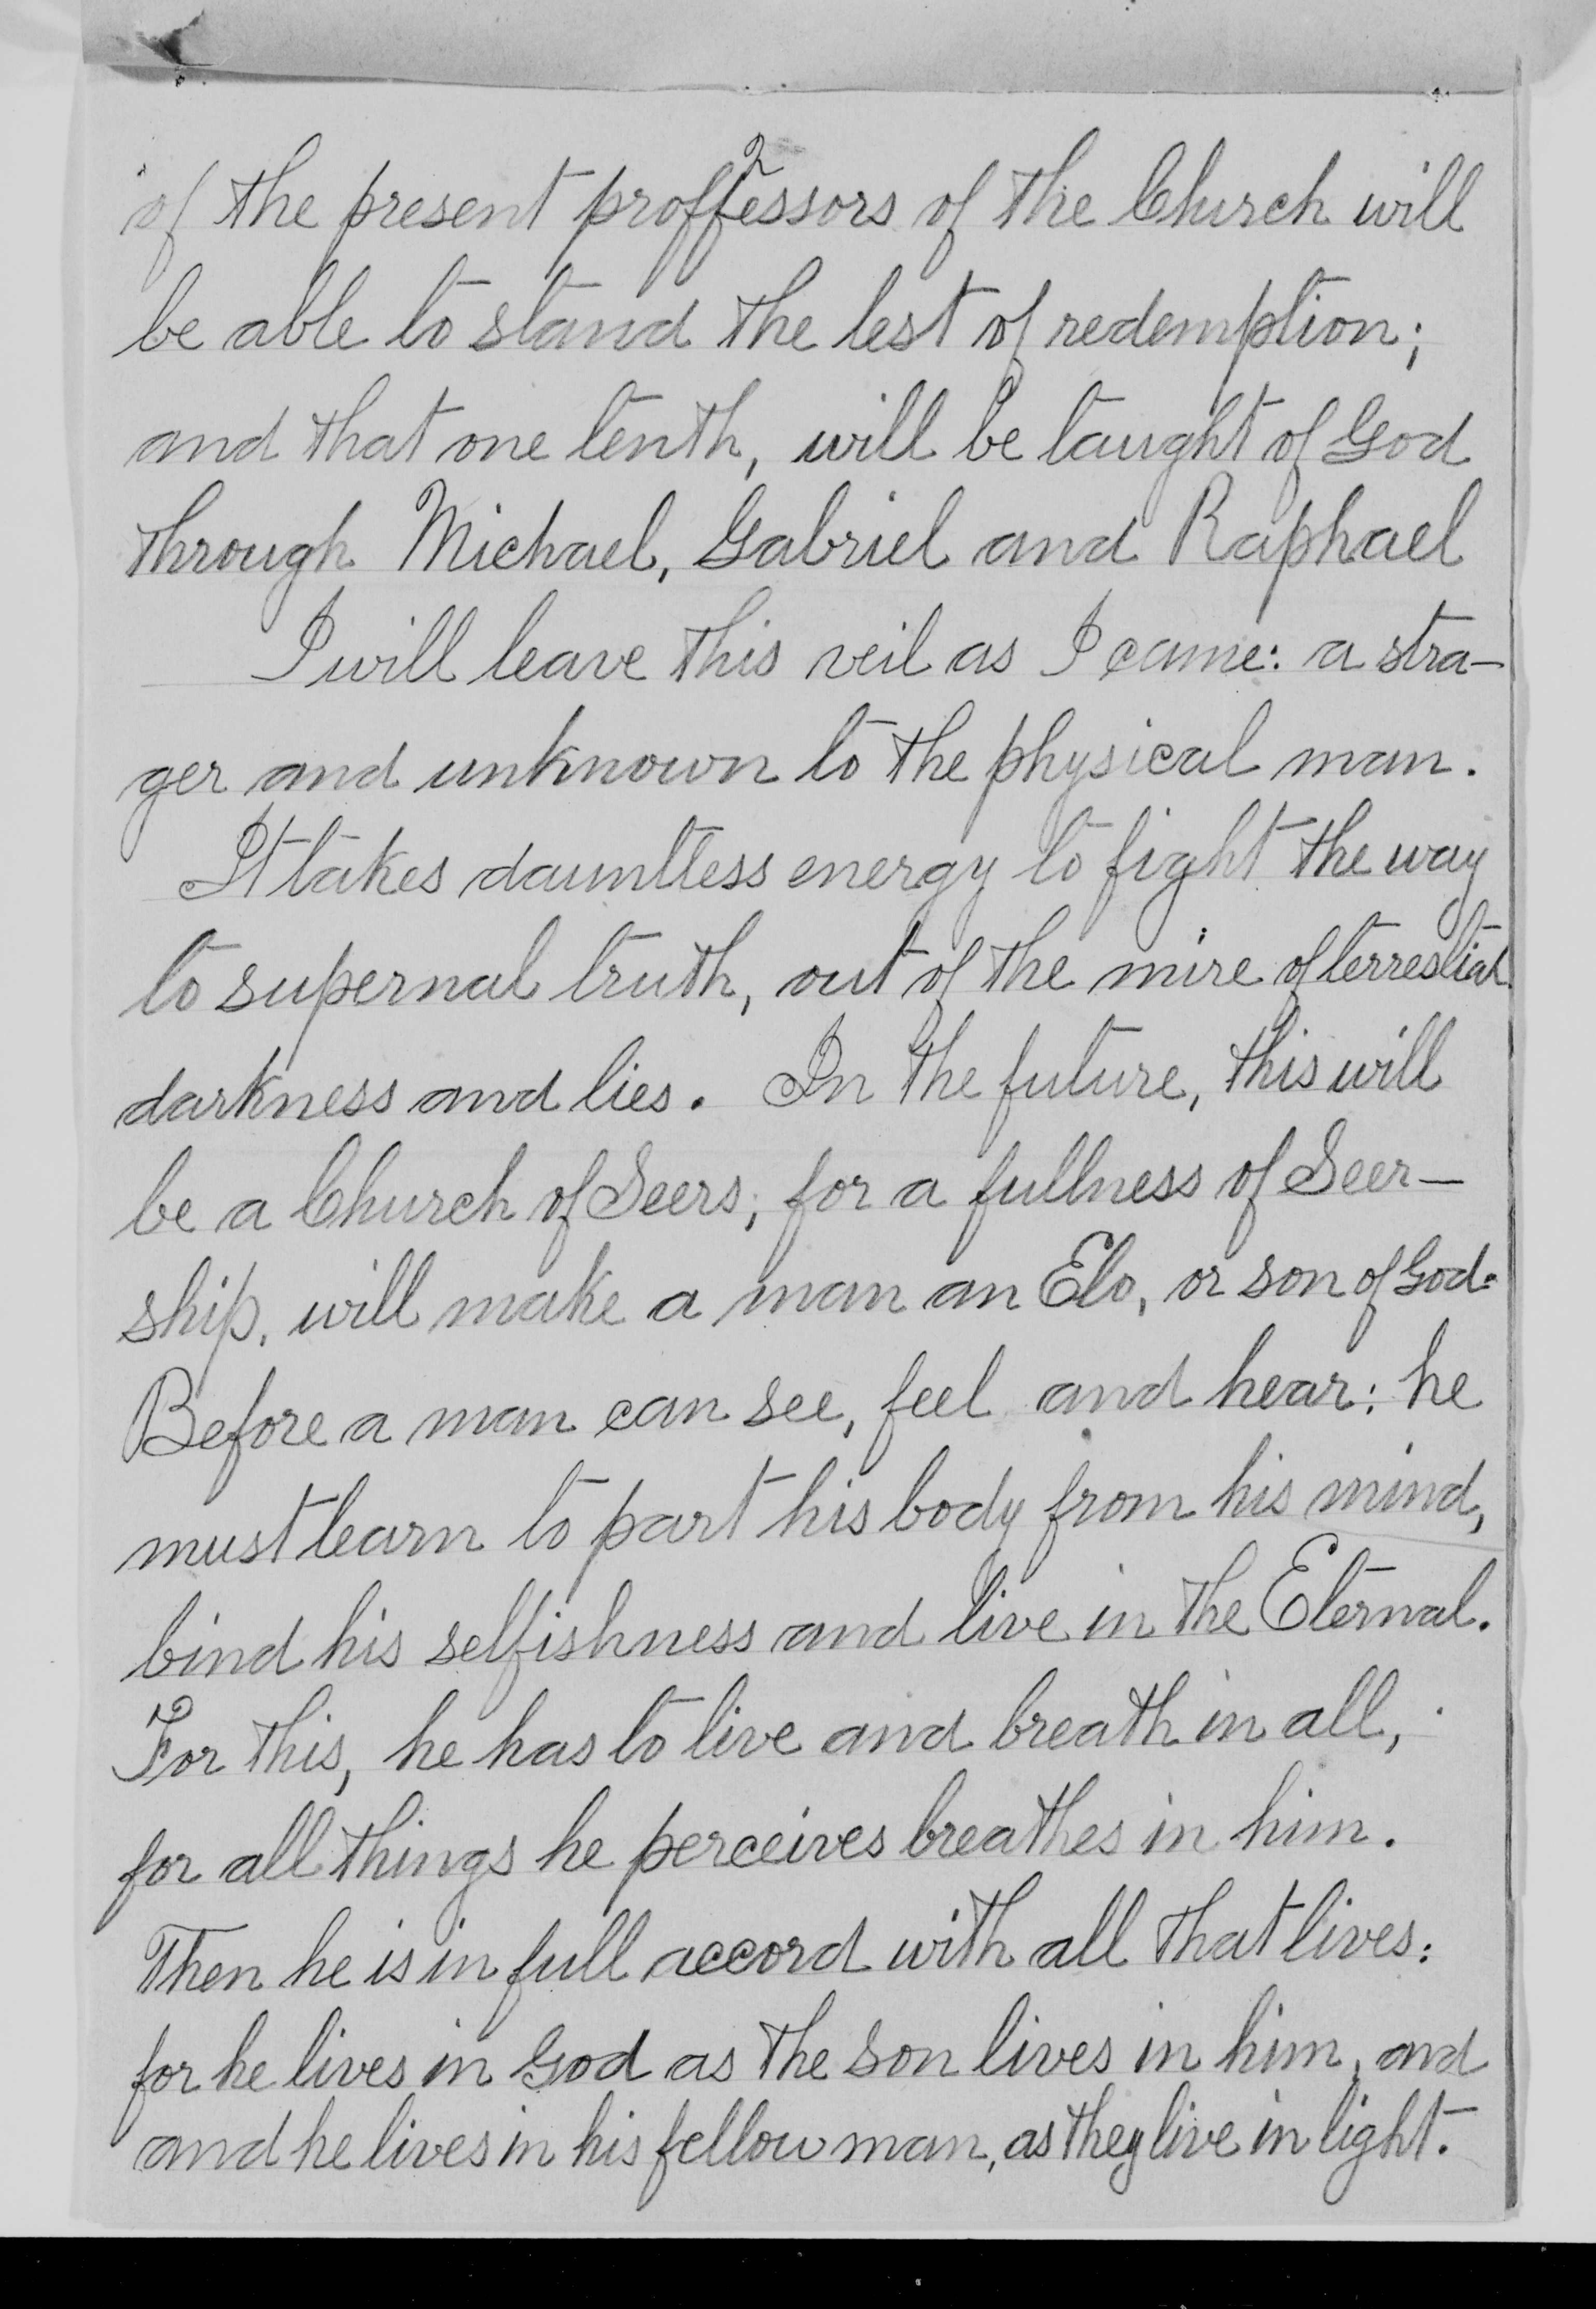 2
of the present proffessors of the Church will
be able to stand the test of redemption;
and that one tenth, will be taught of God
through Michael, Gabriel and Raphael
I will leave this veil as I came: a stra-
ger and unknown to the physical man.
It takes dauntless energy to fight the way
to supernal truth, out of the mire of terrestial
darkness and lies. In the future, this will
be a Church of Seers; for a fullness of Seer-
ship, will make a man an Elo, or son of God.
Before a man can see, feel and hear: he
must learn to part his body from his mind,
bind his selfishness and live in the Eternal.
For this, he has to live and breath in all,
for all things he perceives breathes in him.
Then he is in full accord with all that lives:
for he lives in God as the son lives in him, and
and he lives in his fellow man, as they live in light.